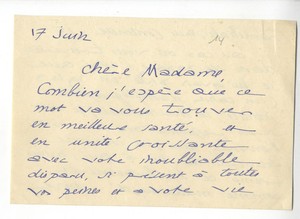 17 Juin
14
Chère Madame,
Combien j'espère que ce
mot va vous trouver
en meilleure santé, et
en unité croissante
avec votre inoubliable
disparu, si présent à toutes
vos peines et à votre vie